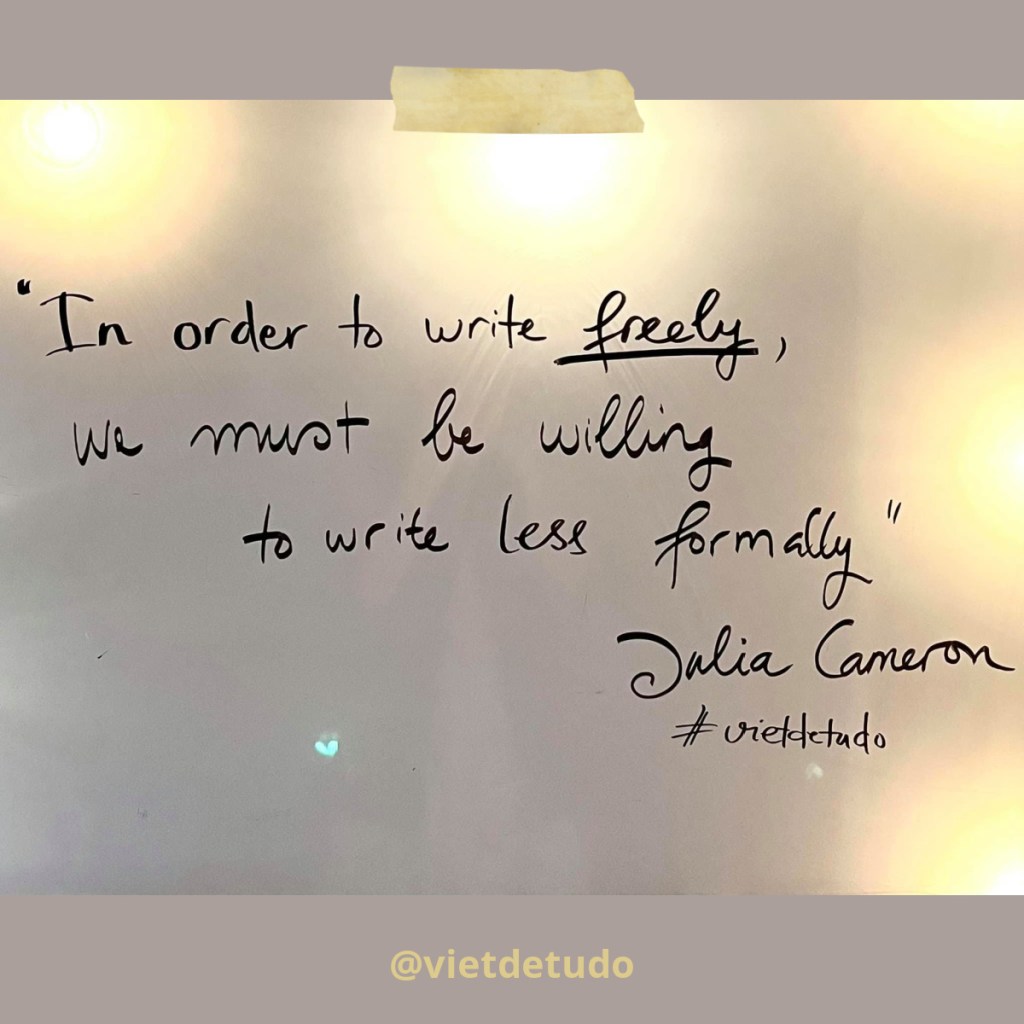 "In order to write freely,
we must be willing
to write less formally"
Julia Cameron
#vietdetudo
@vietdetudo